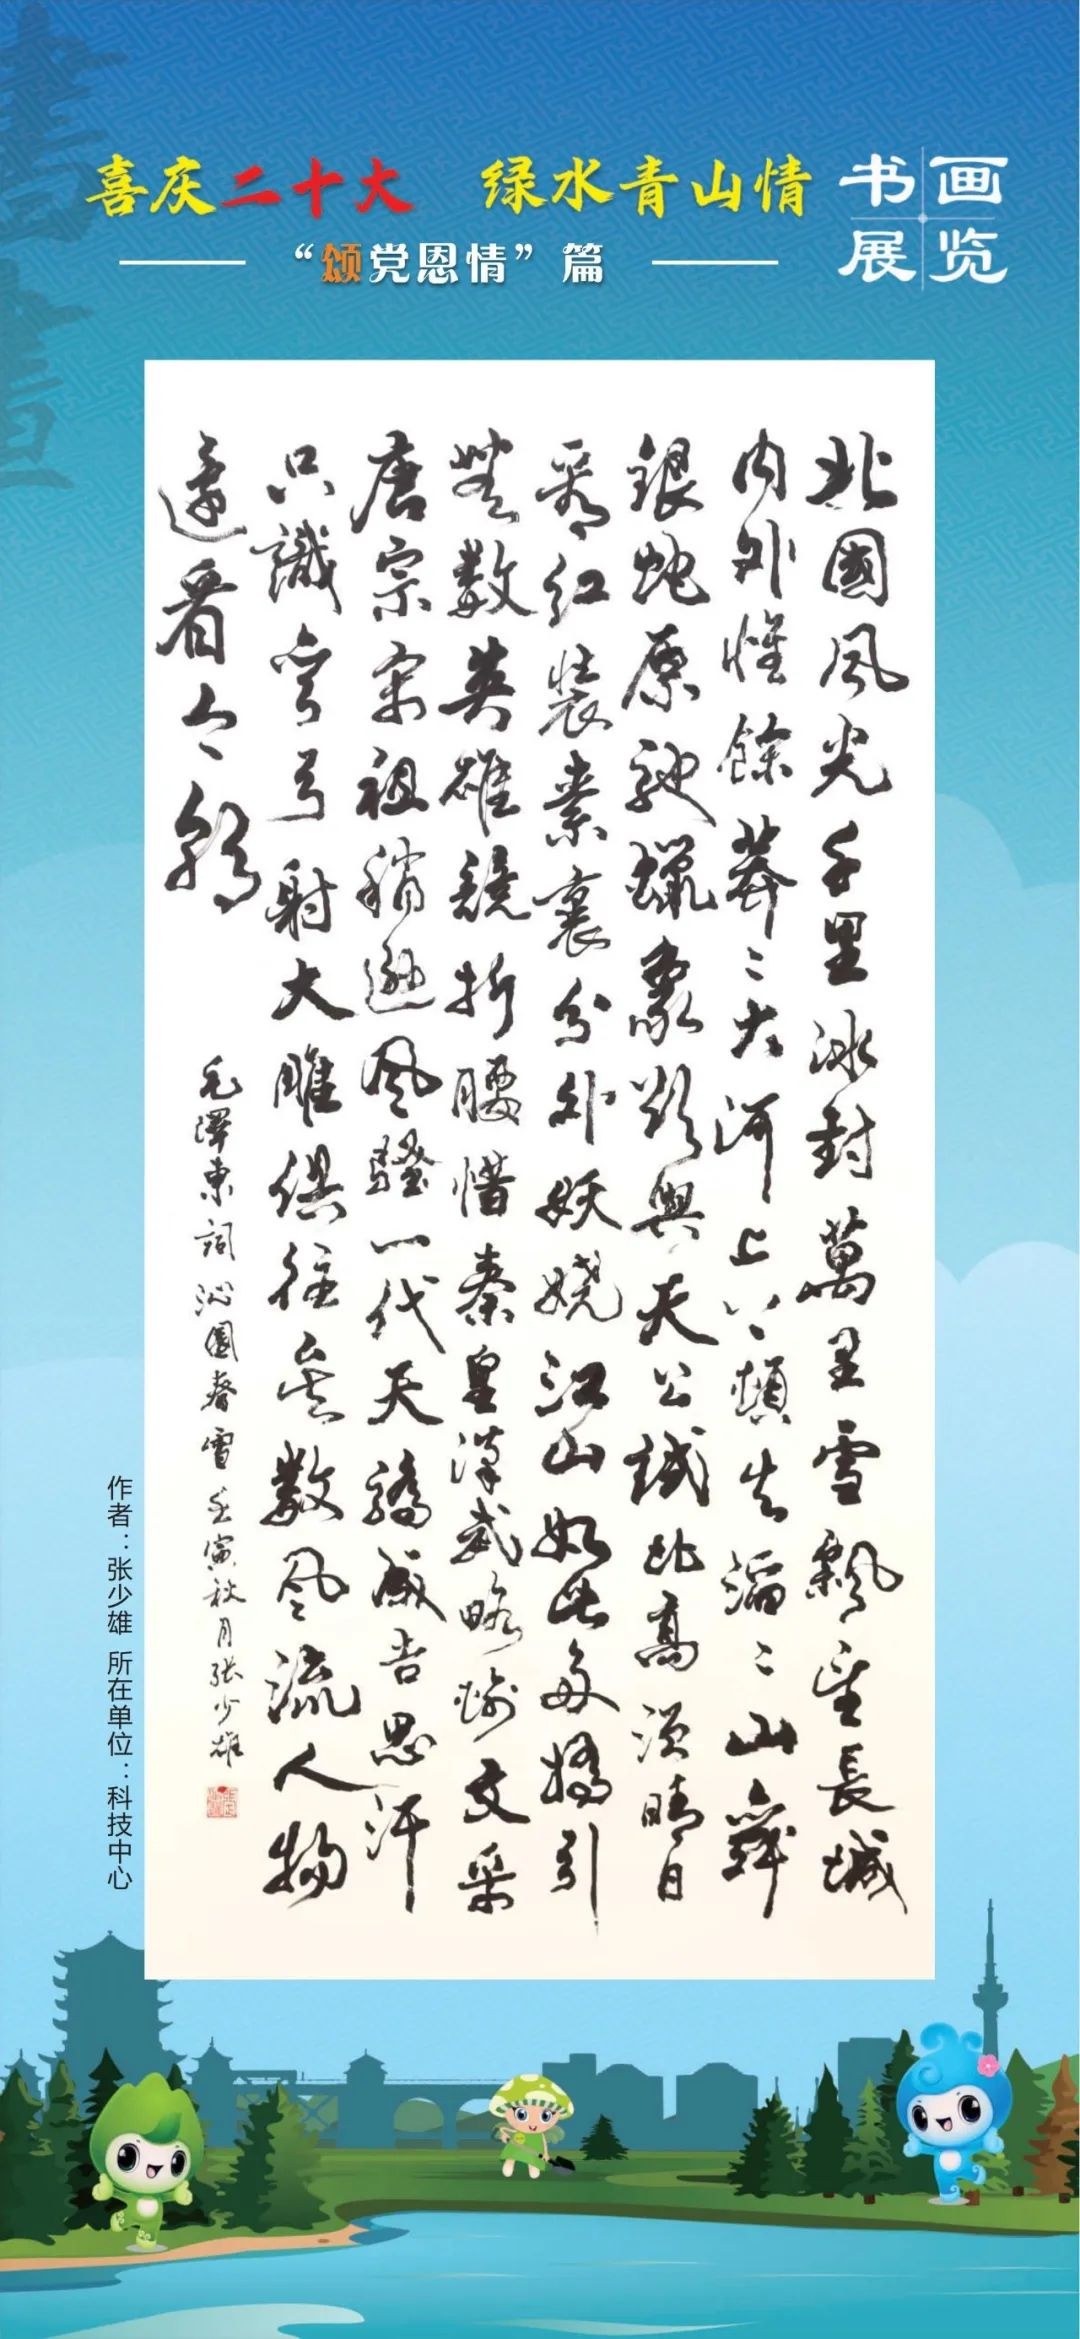 喜庆二十大 绿水青山情
“颂党恩情”篇
书画
展览
書畫
北國風光千里冰封萬里雪飄望長城
内外惟餘莽〻大河上下頓失滔〻山舞
銀蛇原馳蠟象欲與天公試比高須晴日
看红裝素裹分外妖嬈江山如此多嬌引
無數英雄競折腰惜秦皇漢武略輸文采
唐宗宋祖稍遜風騷一代天驕成吉思汗
只識彎弓射大雕俱往矣數風流人物
還看今朝
毛澤東詞沁園春雪壬寅秋月張少雄
作者：张少雄 所在单位：科技中心